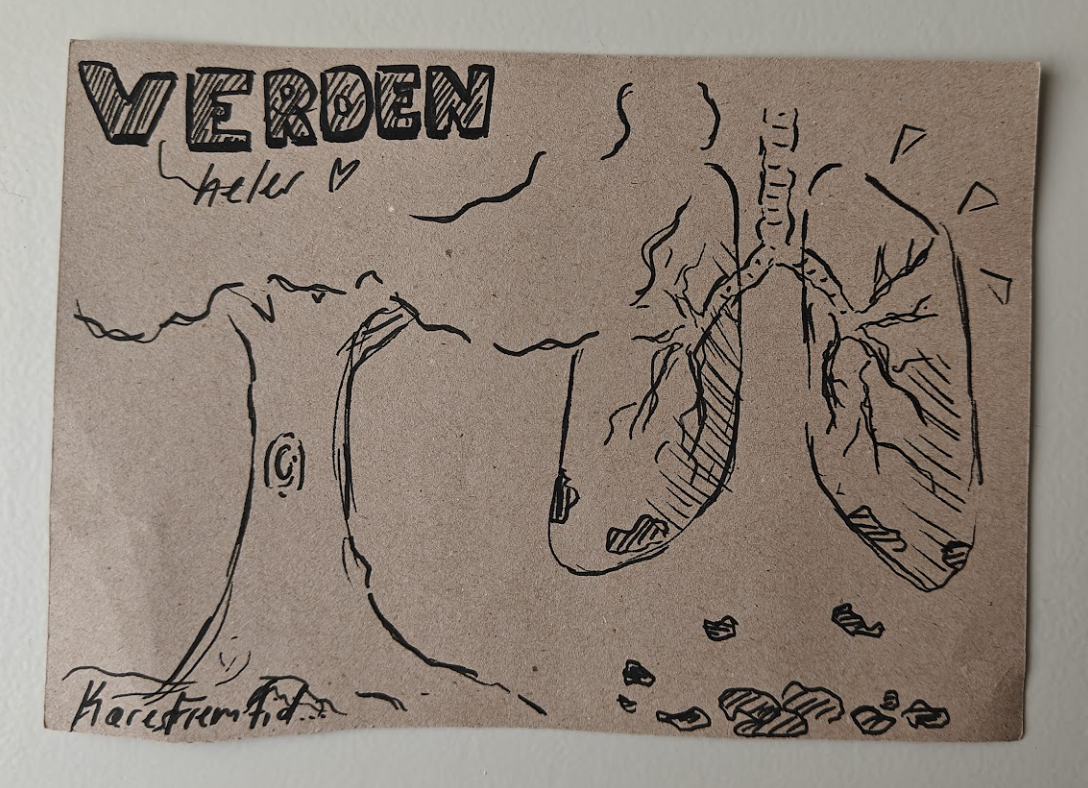 VERDEN
heler ♡
Kære fremtid...